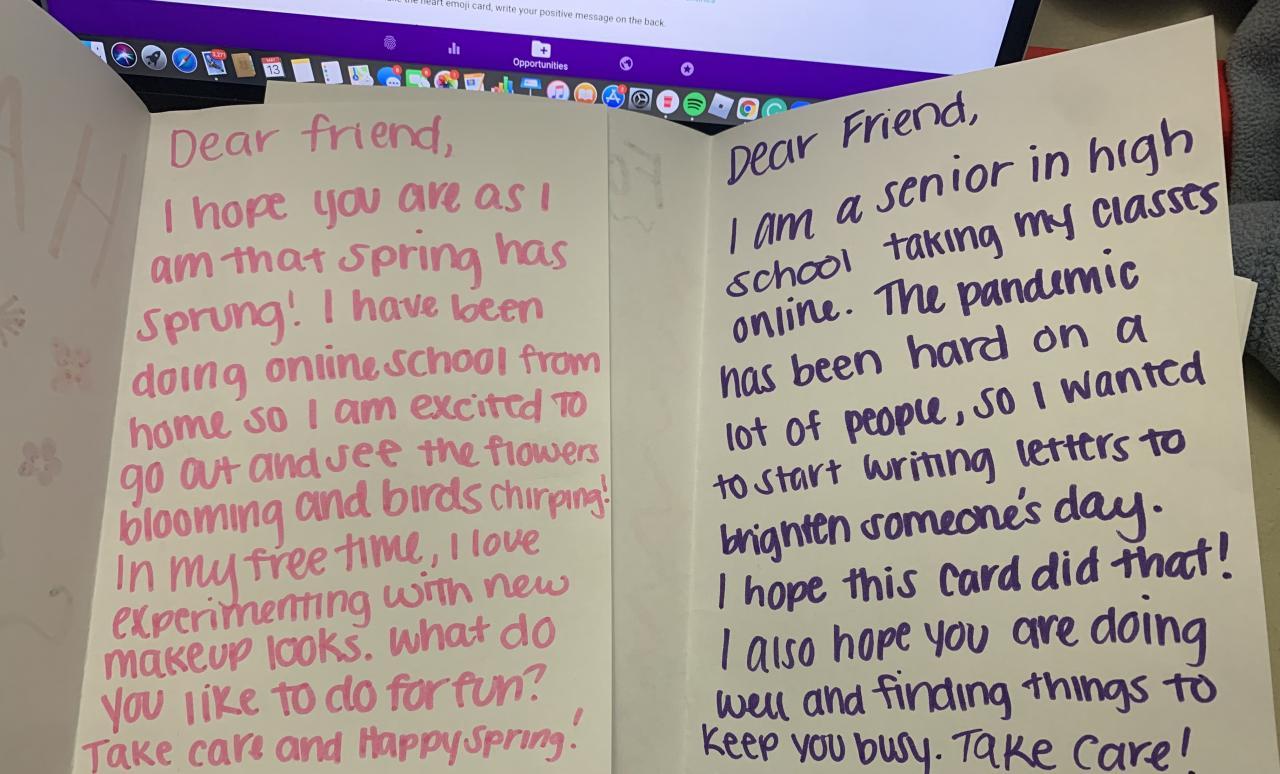 the heart emoji card, write your positive message on the back.
Opportunities
MAY
13
Dear friend,
I hope you are as I
am that spring has
sprung! I have been
doing online school from
home so I am excited to
go out and see the flowers
blooming and birds chirping!
In my free time, I love
experimenting with new
makeup looks. What do
you like to do for fun?
Take care and Happy Spring!
Dear Friend,
I am a senior in high
school taking my classes
online. The pandemic
has been hard on a
lot of people, so I wanted
to start writing letters to
brighten someone's day.
I hope this card did that!
I also hope you are doing
well and finding things to
keep you busy. Take Care!